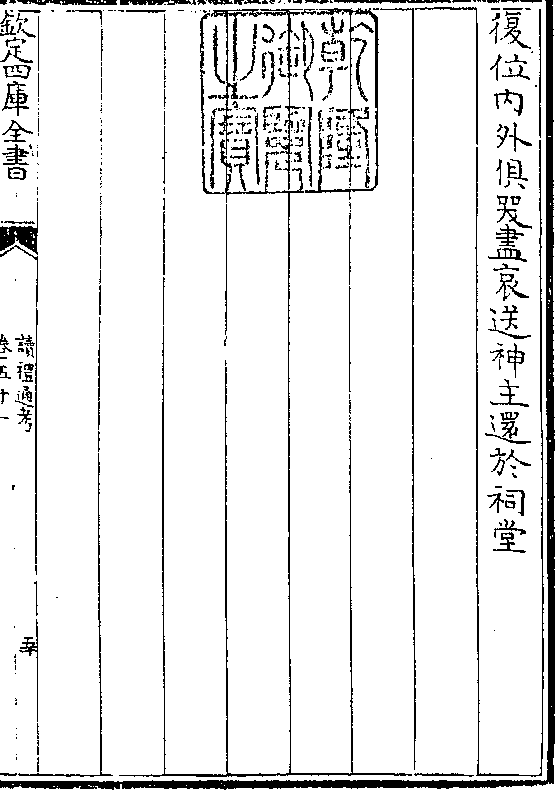 復位內外俱哭盡哀送神主還於祠堂
乾隆
御覽
之寶
欽定四庫全書
讀禮通考
卷五十一